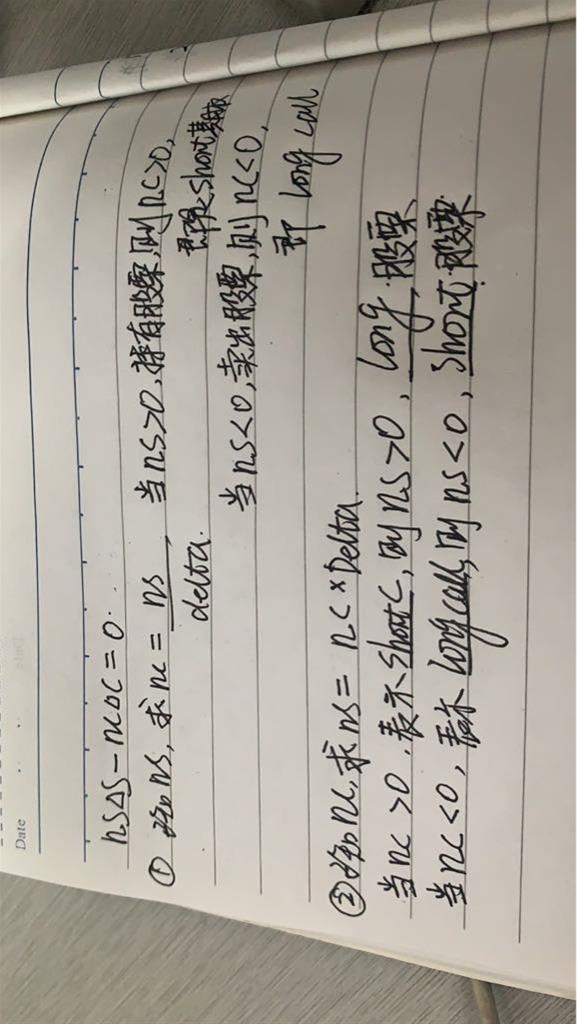 Date
nsΔS-ncΔC=0.
① 已知ns, 求nc = ns/delta. 当ns>0, 持有股票, 则nc>0,
即是short
当ns<0, 卖出股票, 则nc<0,
即 long call
②已知nc, 求ns = nc × Delta.
当nc>0, 表示short C, 则ns>0, long 股票
当nc<0, 表示long call, 则ns<0, short 股票